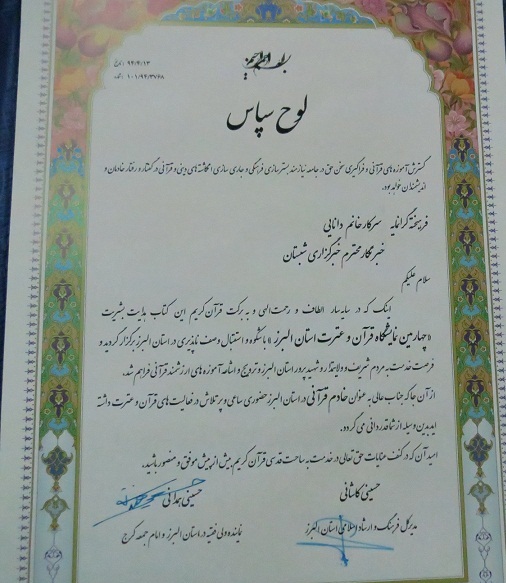 تاریخ: ۹۴/۴/۱۳
شماره: ۱۰۱/۹۴/۳۷۶۸
لوح سپاس
گسترش آموزه های قرآنی و فراگیری سخن حق در جامعه نیازمند بسترسازی فرهنگی و جاری سازی انگاشته های دینی و قرآنی در گفتار و رفتار خادمان و
اندیشمندان خواهد بود.
فرهیخته گرانمایه سرکار خانم دانایی
خبرنگار محترم خبرگزاری شبستان
سلام علیکم
اینک که در سایه سار الطاف و رحمت الهی و به برکت قرآن کریم این کتاب هدایت بشریت
«چهارمین نمایشگاه قرآن و عترت استان البرز» با شکوه و استقبال وصف ناپذیری در استان البرز برگزار گردید و
فرصت خدمت به مردم شریف و ولایتمدار و شهید پرور استان البرز و ترویج و اشاعه آموزه های ارزشمند قرآنی فراهم شد.
از آن جا که جناب عالی به عنوان خادم قرآنی در استان البرز حضوری ساعی و پر تلاش در فعالیت های قرآن و عترت داشته
اید بدین وسیله از شما قدردانی می گردد.
امید آن که در کنف عنایات حق تعالی در خدمت به ساحت قدسی قرآن کریم بیش از پیش موفق و منصور باشید.
حسینی کاشانی
مدیرکل فرهنگ و ارشاد اسلامی استان البرز
حسینی همدانی
نماینده ولی فقیه در استان البرز و امام جمعه کرج